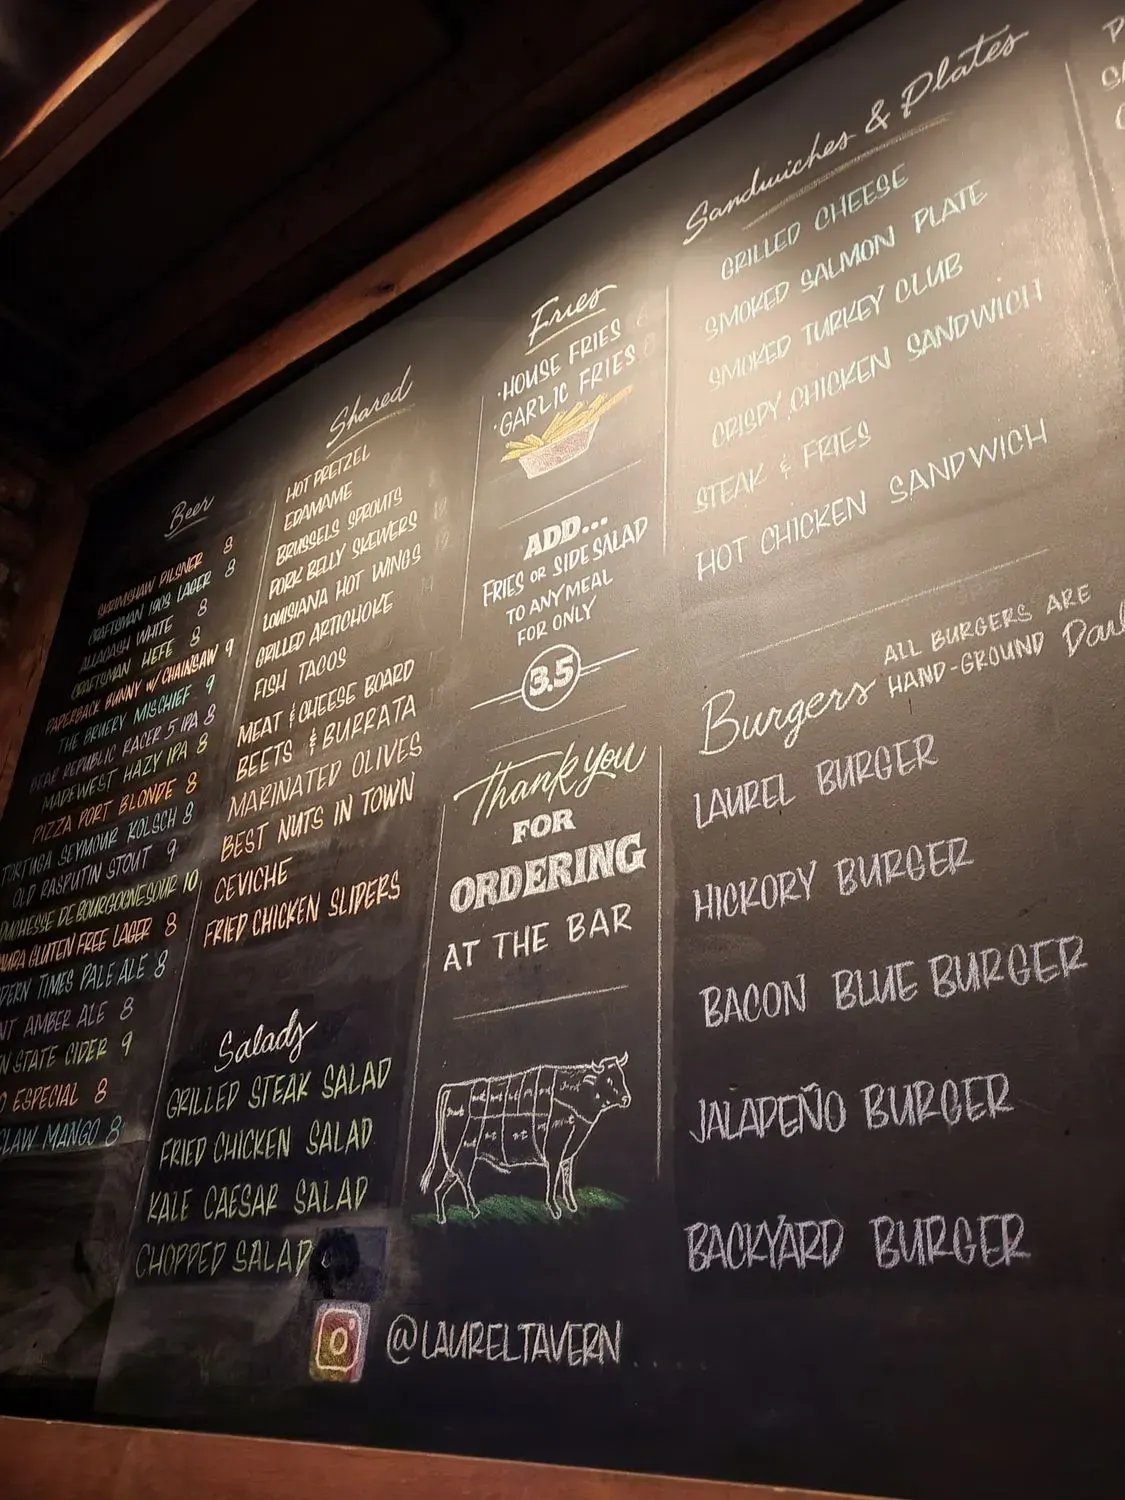 Beer
SCRIMSHAW PILSNER 8
CRAFTSMAN 1903 LAGER 8
ALLAGASH WHITE 8
CRAFTSMAN HEFE 8
PAPERBACK BUNNY W/ CHAINSAW 9
THE BRUERY MISCHIEF 9
BEAR REPUBLIC RACER 5 IPA 8
MADEWEST HAZY IPA 8
PIZZA PORT BLONDE 8
TORTUGA SEYMOUR KOLSCH 8
OLD RASPUTIN STOUT 9
DUCHESSE DE BOURGOGNE SOUR 10
GLUTEN FREE LAGER 8
DERN TIMES PALE ALE 8
NT AMBER ALE 8
N STATE CIDER 9
O ESPECIAL 8
CLAW MANGO 8
Shared
HOT PRETZEL
EDAMAME
BRUSSELS SPROUTS
PORK BELLY SKEWERS
LOUISIANA HOT WINGS
GRILLED ARTICHOKE
FISH TACOS
MEAT & CHEESE BOARD
BEETS & BURRATA
MARINATED OLIVES
BEST NUTS IN TOWN
CEVICHE
FRIED CHICKEN SLIDERS
Salads
GRILLED STEAK SALAD
FRIED CHICKEN SALAD
KALE CAESAR SALAD
CHOPPED SALAD
Fries
·HOUSE FRIES 6
·GARLIC FRIES
ADD...
FRIES OR SIDE SALAD
TO ANY MEAL
FOR ONLY
3.5
Thank you
FOR
ORDERING
AT THE BAR
@LAURELTAVERN
Sandwiches & Plates
GRILLED CHEESE
SMOKED SALMON PLATE
SMOKED TURKEY CLUB
CRISPY CHICKEN SANDWICH
STEAK & FRIES
HOT CHICKEN SANDWICH
Burgers
ALL BURGERS ARE
HAND-GROUND Dail
LAUREL BURGER
HICKORY BURGER
BACON BLUE BURGER
JALAPEÑO BURGER
BACKYARD BURGER